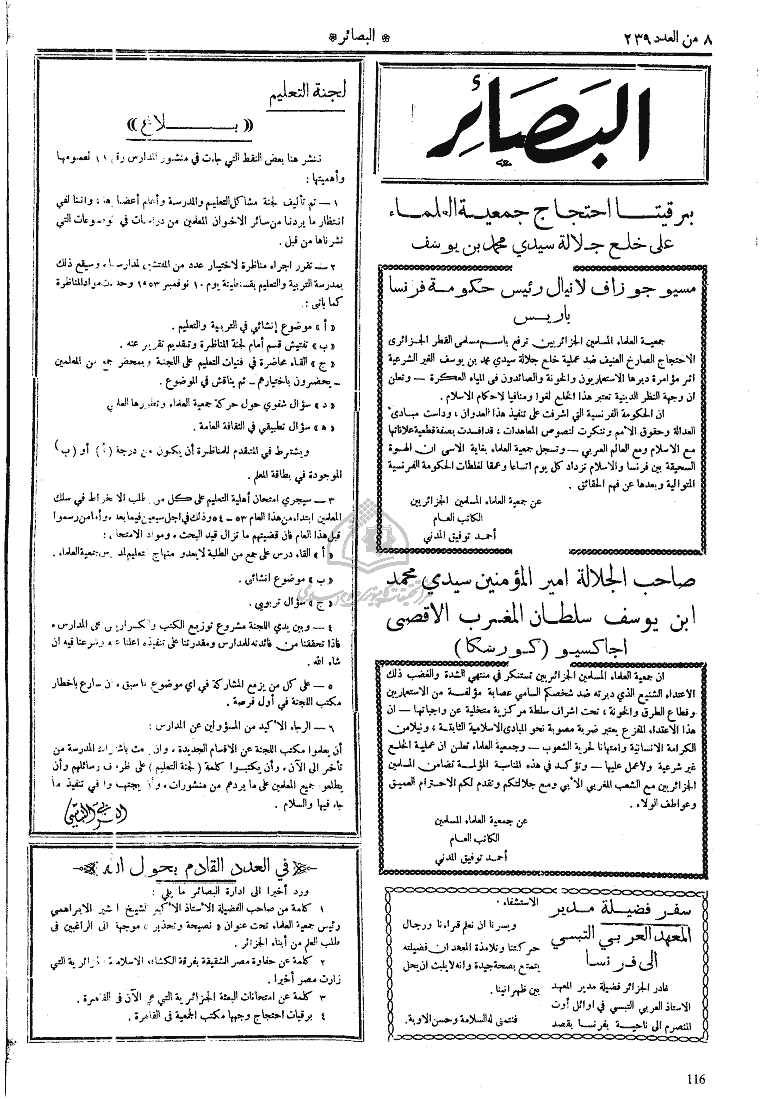 ٨ من العدد ٢٣٩
* البصائر *
البَصَائر
ببرقيتنا احتجاج جمعية العلماء
على خلع جلالة سيدي محمد بن يوسف
مسيو جوزاف لانيال رئيس حكومة فرنسا
باريس
جمعية العلماء المسلمين الجزائريين ترفع باسم مسلمي القطر الجزائري
الاحتجاج الصارخ العنيف ضد عملية خلع جلالة سيدي محمد بن يوسف الغير الشرعية
اثر مؤامرة دبرها الاستعماريون والخونة والصائدون في المياه العكرة — وتعلن
ان وجهة النظر الدينية تعتبر هذا الخلع لغوا ومنافيا لاحكام الاسلام .
ان الحكومة الفرنسية التي اشرفت على تنفيذ هذا العدوان ، وداست مبادىء
العدالة وحقوق الأمم وتنكرت لنصوص المعاهدات ، قد افسدت بصفة قطعية علاقاتها
مع الاسلام ومع العالم العربي — وتسجل جمعية العلماء بغاية الاسى ان الهوة
السحيقة بين فرنسا والاسلام تزداد كل يوم اتساعا وعمقا لغلطات الحكومة الفرنسية
المتوالية وبعدها عن فهم الحقائق .
عن جمعية العلماء المسلمين الجزائريين
الكاتب العام
أحمد توفيق المدني
صاحب الجلالة امير المؤمنين سيدي محمد
ابن يوسف سلطان المغرب الاقصى
اجاكسيو (كورسكا)
ان جمعية العلماء المسلمين الجزائريين تستنكر في منتهى الشدة والغضب ذلك
الاعتداء الشنيع الذي دبرته ضد شخصكم السامي عصابة مؤلفة من الاستعماريين
وقطاع الطرق والخونة ، تحت اشراف سلطة مركزية متخلية عن واجباتها — ان
هذا الاعتداء المفزع يعتبر ضربة مصوبة نحو المبادىء الاسلامية الثابتة ، ونيلا من
الكرامة الانسانية وامتهانا لحرية الشعوب — وجمعية العلماء تعلن ان عملية الخلع
غير شرعية ولا عمل عليها — وتؤكد في هذه المناسبة المؤلمة تضامن المسلمين
الجزائريين مع الشعب المغربي الأبي ومع جلالتكم وتقدم لكم الاحترام العميق
وعواطف الولاء .
عن جمعية العلماء المسلمين
الكاتب العام
أحمد توفيق المدني
سفر فضيلة مدير
المعهد العربي التبسي
الى فرنسا
غادر الجزائر فضيلة مدير المعهد
الاستاذ العربي التبسي في اوائل أوت
المنصرم الى ناحية بفرنسا بقصد
الاستشفاء .
ويسرنا ان نعلم قراءنا ورجال
حركتنا وتلامذة المعهد ان فضيلته
يتمتع بصحة جيدة وانه لا يلبث ان يحل
بين ظهرانينا .
فنتمنى له السلامة وحسن الاوبة .
لجنة التعليم
« بـــلاغ »
ننشر هنا بعض النقط التي جاءت في منشور المدارس رقم ١١ لعمومها
وأهميتها :
١ — تم تأليف لجنة مشاكل التعليم والمدرسة وأمام أعضاء ها ، واننا لفي
انتظار ما يردنا من سائر الاخوان المعلمين من دراسات في الموضوعات التي
نشرناها من قبل .
٢ — تقرر اجراء مناظرة لاختيار عدد من المفتشين للمدارس ، وسيقع ذلك
بمدرسة التربية والتعليم بقسنطينة يوم ١٠ نوفمبر ١٩٥٣ وحددت مواد المناظرة
كما يأتي :
« أ » موضوع إنشائي في التربية والتعليم .
« ب » تفتيش قسم أمام لجنة المناظرة وتقديم تقرير عنه .
« ج » القاء محاضرة في فنيات التعليم على اللجنة وبمحضر جمع من المعلمين
— يحضرون باختيارهم — ثم يناقش في الموضوع .
« د » سؤال شفوي حول حركة جمعية العلماء وتطورها العلمي
« ه » سؤال تطبيقي في الثقافة العامة .
ويشترط في المتقدم للمناظرة أن يكون من درجة ( أ ) او ( ب )
الموجودة في بطاقة المعلم .
٣ — سيجري امتحان أهلية التعليم على كل من طلب الانخراط في سلك
المعلمين ابتداء من هذا العام ٥٣ – ٥٤ وذلك في اجل سيعين فيما بعد ، وأما من رسموا
قبل هذا العام فان قضيتهم ما تزال قيد البحث ، ومواد الامتحان :
« أ » القاء درس على جمع من الطلبة لا يعدو منهاج التعليم لمدارس جمعية العلماء .
« ب » موضوع انشائي .
« ج » سؤال تربوي .
٤ — وبين يدي اللجنة مشروع توزيع الكتب والكراريس على المدارس ،
فاذا تحققنا من فائدته للمدارس ومقدرتنا على تنفيذه اعلنا عنه وشرعنا فيه ان
شاء الله .
٥ — على كل من يزمع المشاركة في اي موضوع مما سبق ان يسارع باخطار
مكتب اللجنة في أول فرصة .
٦ — الرجاء الأكيد من المسؤولين عن المدارس :
أن يعلموا مكتب اللجنة عن الاقسام الجديدة ، وان يبعث باشتراك المدرسة من
تأخر الى الآن ، وأن يكتبوا كلمة ( لجنة التعليم ) على ظروف رسائلهم وأن
يطلعوا جميع المعلمين على ما يردهم من منشورات ، وأن يجتهدوا في تنفيذ ما
جاء فيها والسلام .
في العدد القادم بحول الله
ورد أخيرا الى ادارة البصائر ما يلي :
١ كلمة من صاحب الفضيلة الأستاذ الأكبر الشيخ البشير الابراهيمي
رئيس جمعية العلماء تحت عنوان « نصيحة وتحذير » موجهة الى الراغبين في
طلب العلم من أبناء الجزائر .
٢ كلمة عن حفاوة مصر الشقيقة بفرقة الكشافة الاسلامية الجزائرية التي
زارت مصر أخيرا .
٣ كلمة عن امتحانات البعثة الجزائرية التي هي الآن في القاهرة .
٤ برقيات احتجاج وجهها مكتب الجمعية في القاهرة .
116